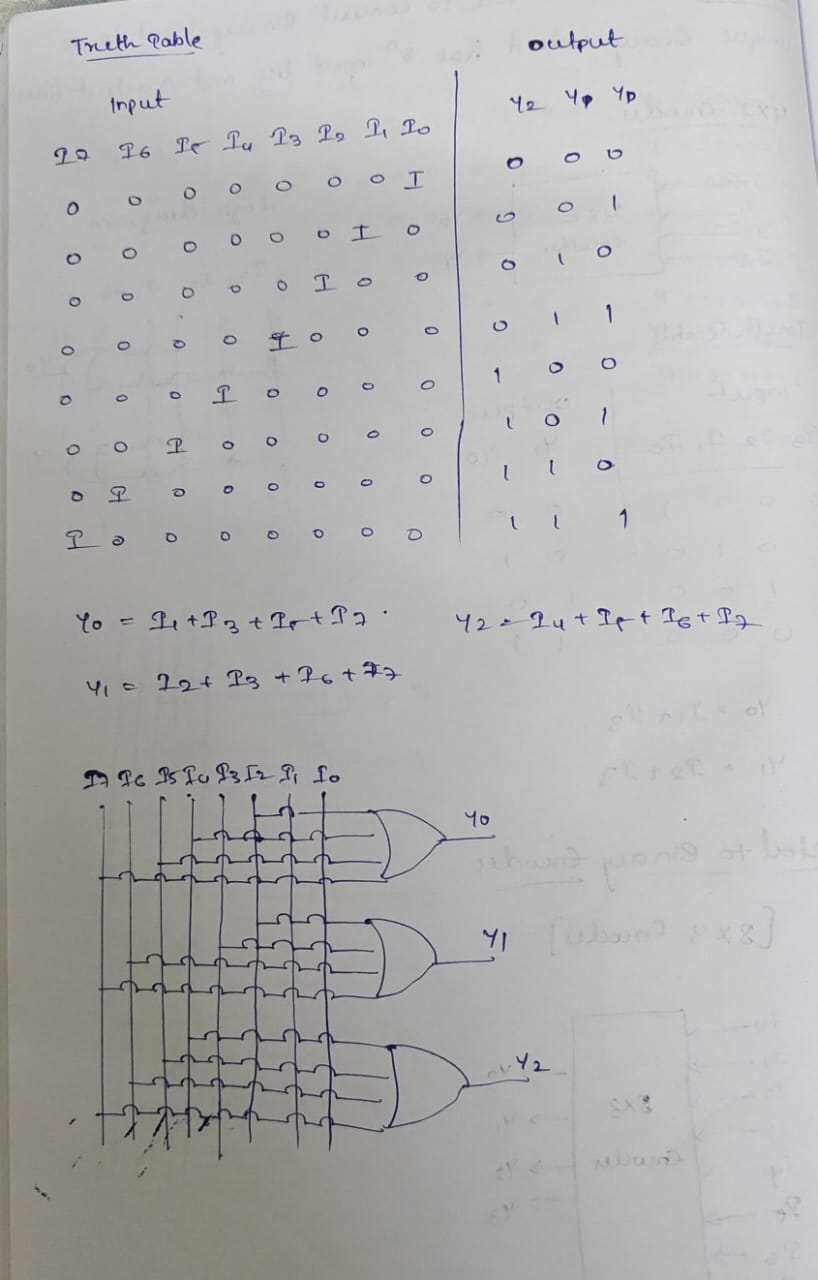 Truth Table
Input output
I7 I6 I5 I4 I3 I2 I1 I0 Y2 Y1 Y0
0 0 0 0 0 0 0 1 0 0 0
0 0 0 0 0 0 1 0 0 0 1
0 0 0 0 0 1 0 0 0 1 0
0 0 0 0 1 0 0 0 0 1 1
0 0 0 1 0 0 0 0 1 0 0
0 0 1 0 0 0 0 0 1 0 1
0 1 0 0 0 0 0 0 1 1 0
1 0 0 0 0 0 0 0 1 1 1
Y0 = I1 + I3 + I5 + I7 . Y2 = I4 + I5 + I6 + I7
Y1 = I2 + I3 + I6 + I7
I7 I6 I5 I4 I3 I2 I1 I0
Y0
Y1
Y2